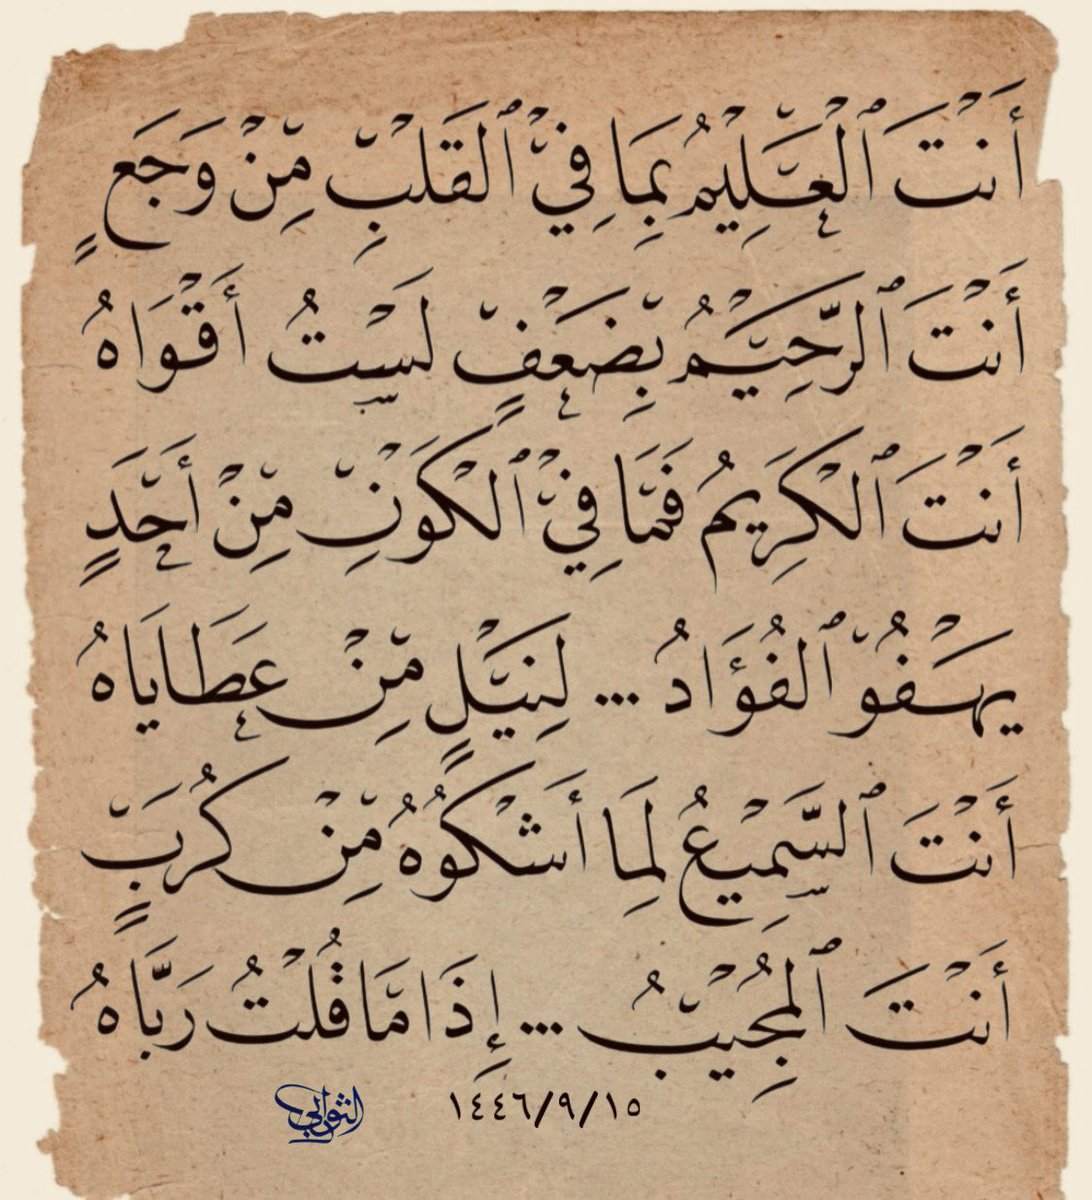 أَنْتَ ٱلْعَلِيْمُ بِمَا فِيْ ٱلْقَلْبِ مِنْ وَجَعٍ
أَنْتَ ٱلرَّحِيْمُ بِضَعْفٍ لَسْتُ أَقْوَاهُ
أَنْتَ ٱلْكَرِيمُ فَمَا فِيْ ٱلْكَوْنِ مِنْ أَحَدٍ
يَهْفُوْ ٱلفُؤَادُ ... لِنَيْلٍ مِنْ عَطَايَاهُ
أَنْتَ ٱلسَّمِيْعُ لِمَا أَشْكُوُهُ مِنْ كُرَبٍ
أَنْتَ ٱلمُجِيْبُ ... إِذَا مَا قُلْتُ رَبَّاهُ
١٤٤٦/٩/١٥
الثوابي